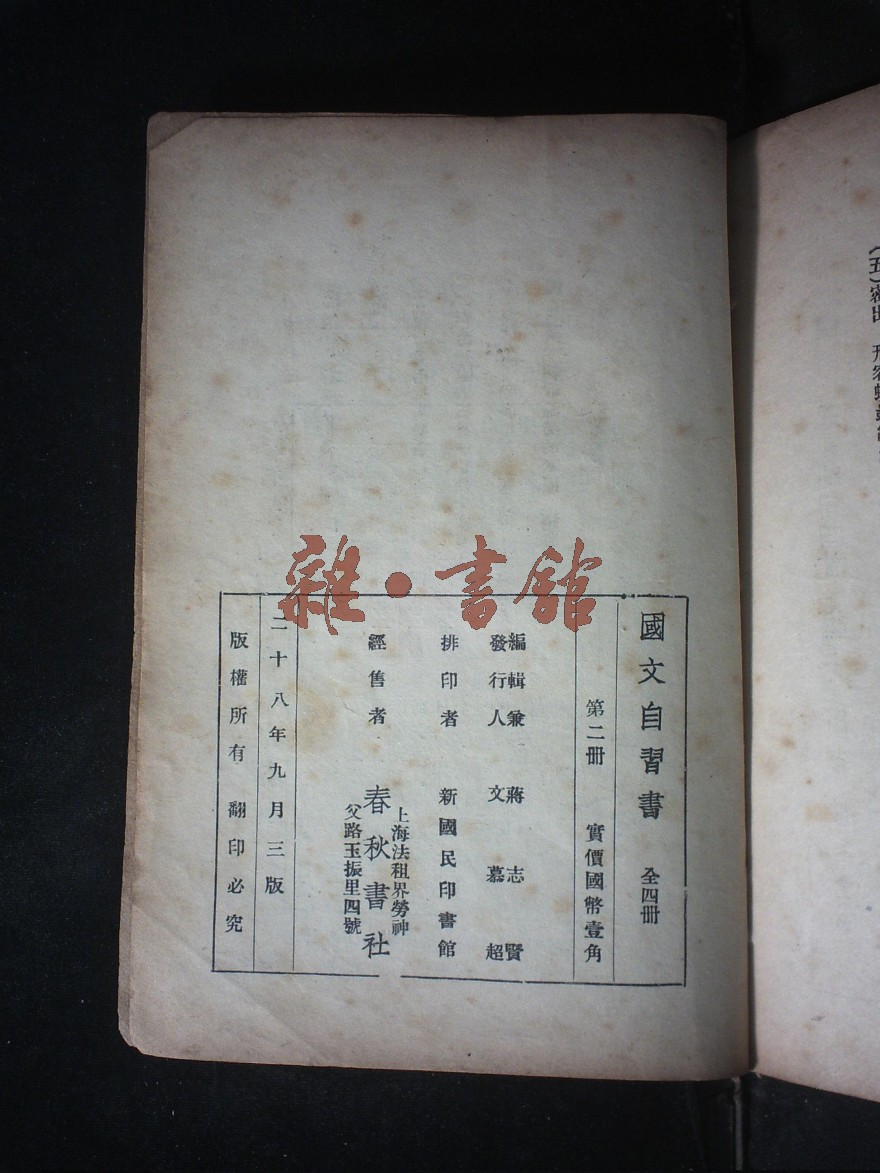 雜·書館
國文自習書 全四冊
第二冊 實價國幣壹角
編輯兼 蔣志賢
發行人 文慕超
排印者 新國民印書館
經售者 春秋書社
上海法租界勞神
父路玉振里四號
二十八年九月三版
版權所有 翻印必究
(五)